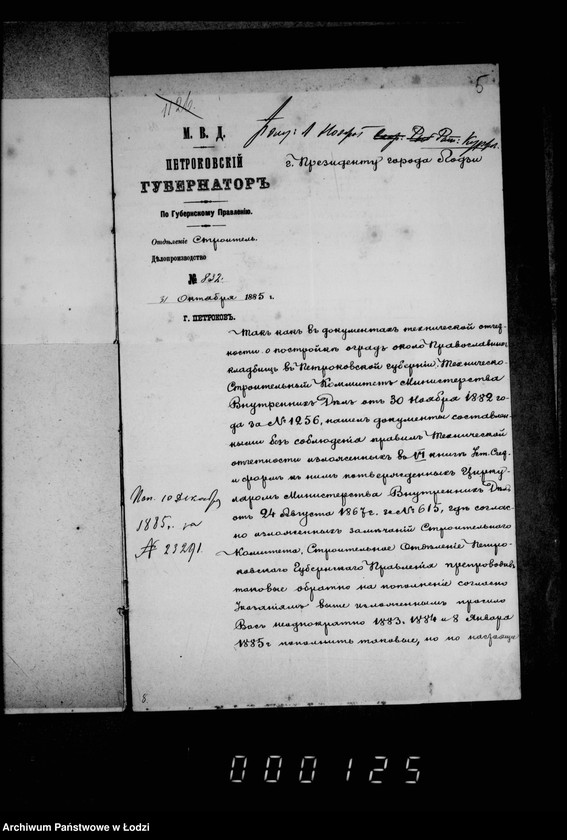 5
М. В. Д.
ПЕТРОКОВСКІЙ
ГУБЕРНАТОРЪ
По Губернскому Правленію.
Отдѣленіе Строител.
Дѣлопроизводство
№ 832.
31 Октября 1885 г.
г. ПЕТРОКОВЪ.
г. Президенту города Лодзи
Такъ какъ въ документахъ технической отчет-
ности о постройкѣ оградъ около Православныхъ
кладбищъ въ Петроковской губерніи, Техническо-
Строительный Коммитетъ Министерства
Внутреннихъ Дѣлъ отъ 30 Ноября 1882 го-
да за № 1256, нашелъ документы составлен-
ными безъ соблюденія правилъ Технической
отчетности изложенныхъ въ VI книгѣ
и формъ къ нимъ потвержденныхъ Цирку-
ляромъ Министерства Внутреннихъ Дѣлъ
отъ 24 Августа 1867 г. за № 615, гдѣ соглас-
но изложенныхъ замѣчаній Строительнаго
Комитета, Строительное Отдѣленіе Петро-
ковскаго Губернскаго Правленія препроводивъ
таковые обратно на пополненіе согласно
Указаніямъ выше изложеннымъ просило
Васъ неоднократно 1883, 1884 и 8 Января
1885 г пополнить таковые, но по настояще
Исп. 10 Декабр
1885 г. за
№ 23291.
8.
000125
Archiwum Państwowe w Łodzi